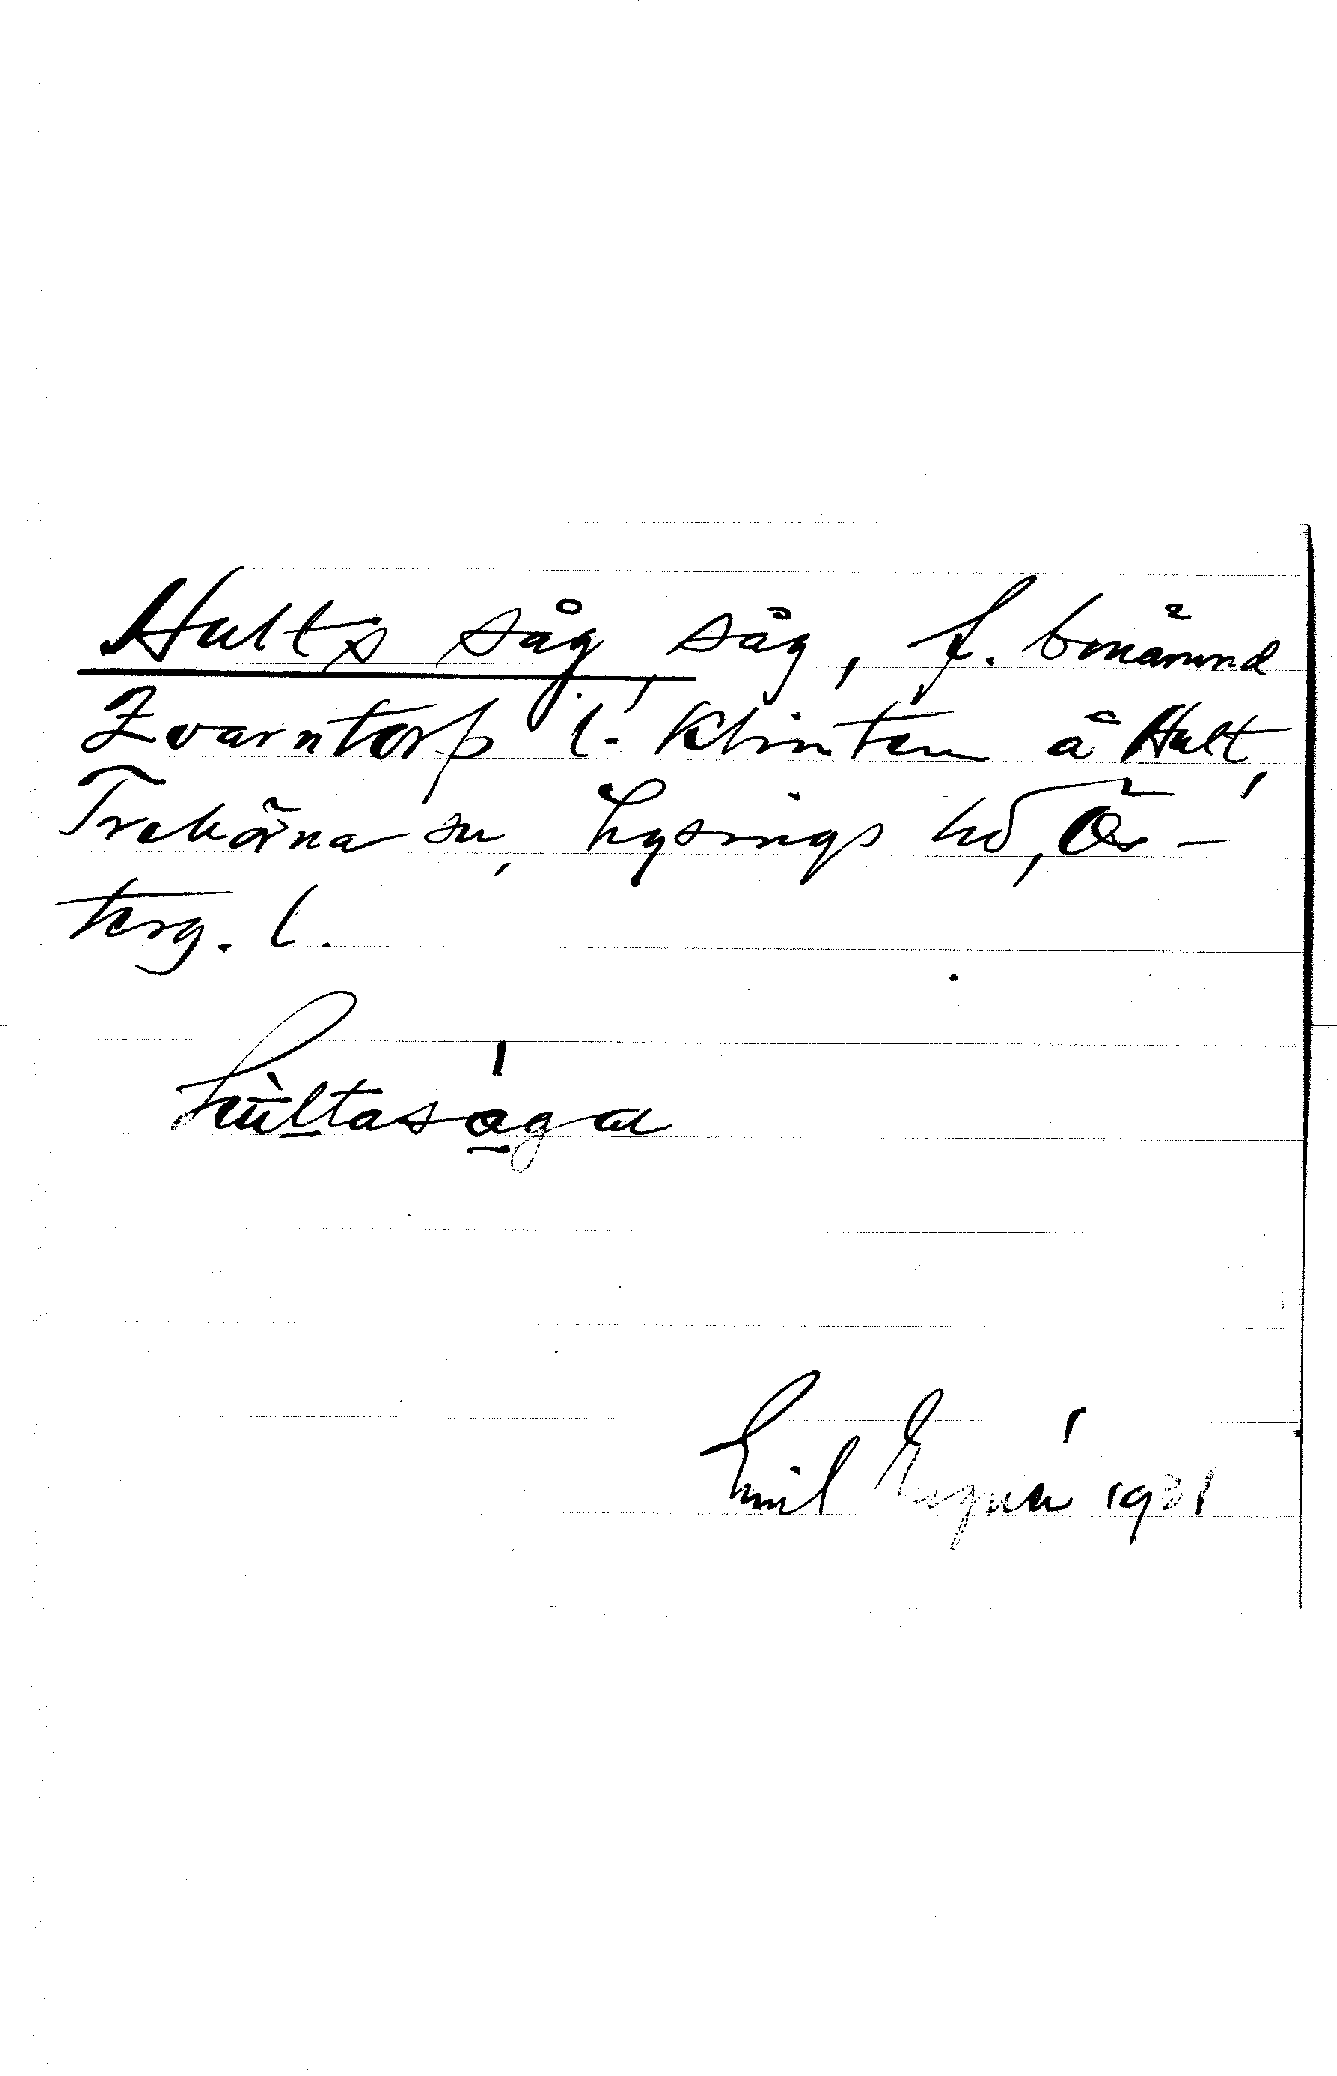 Hults såg, såg, f. benämnd
Kvarntorp l. Klinten å Hult,
Trehörna sn, Lysings hd, Ös-
terg. l.
hùltasága
Emil 1931